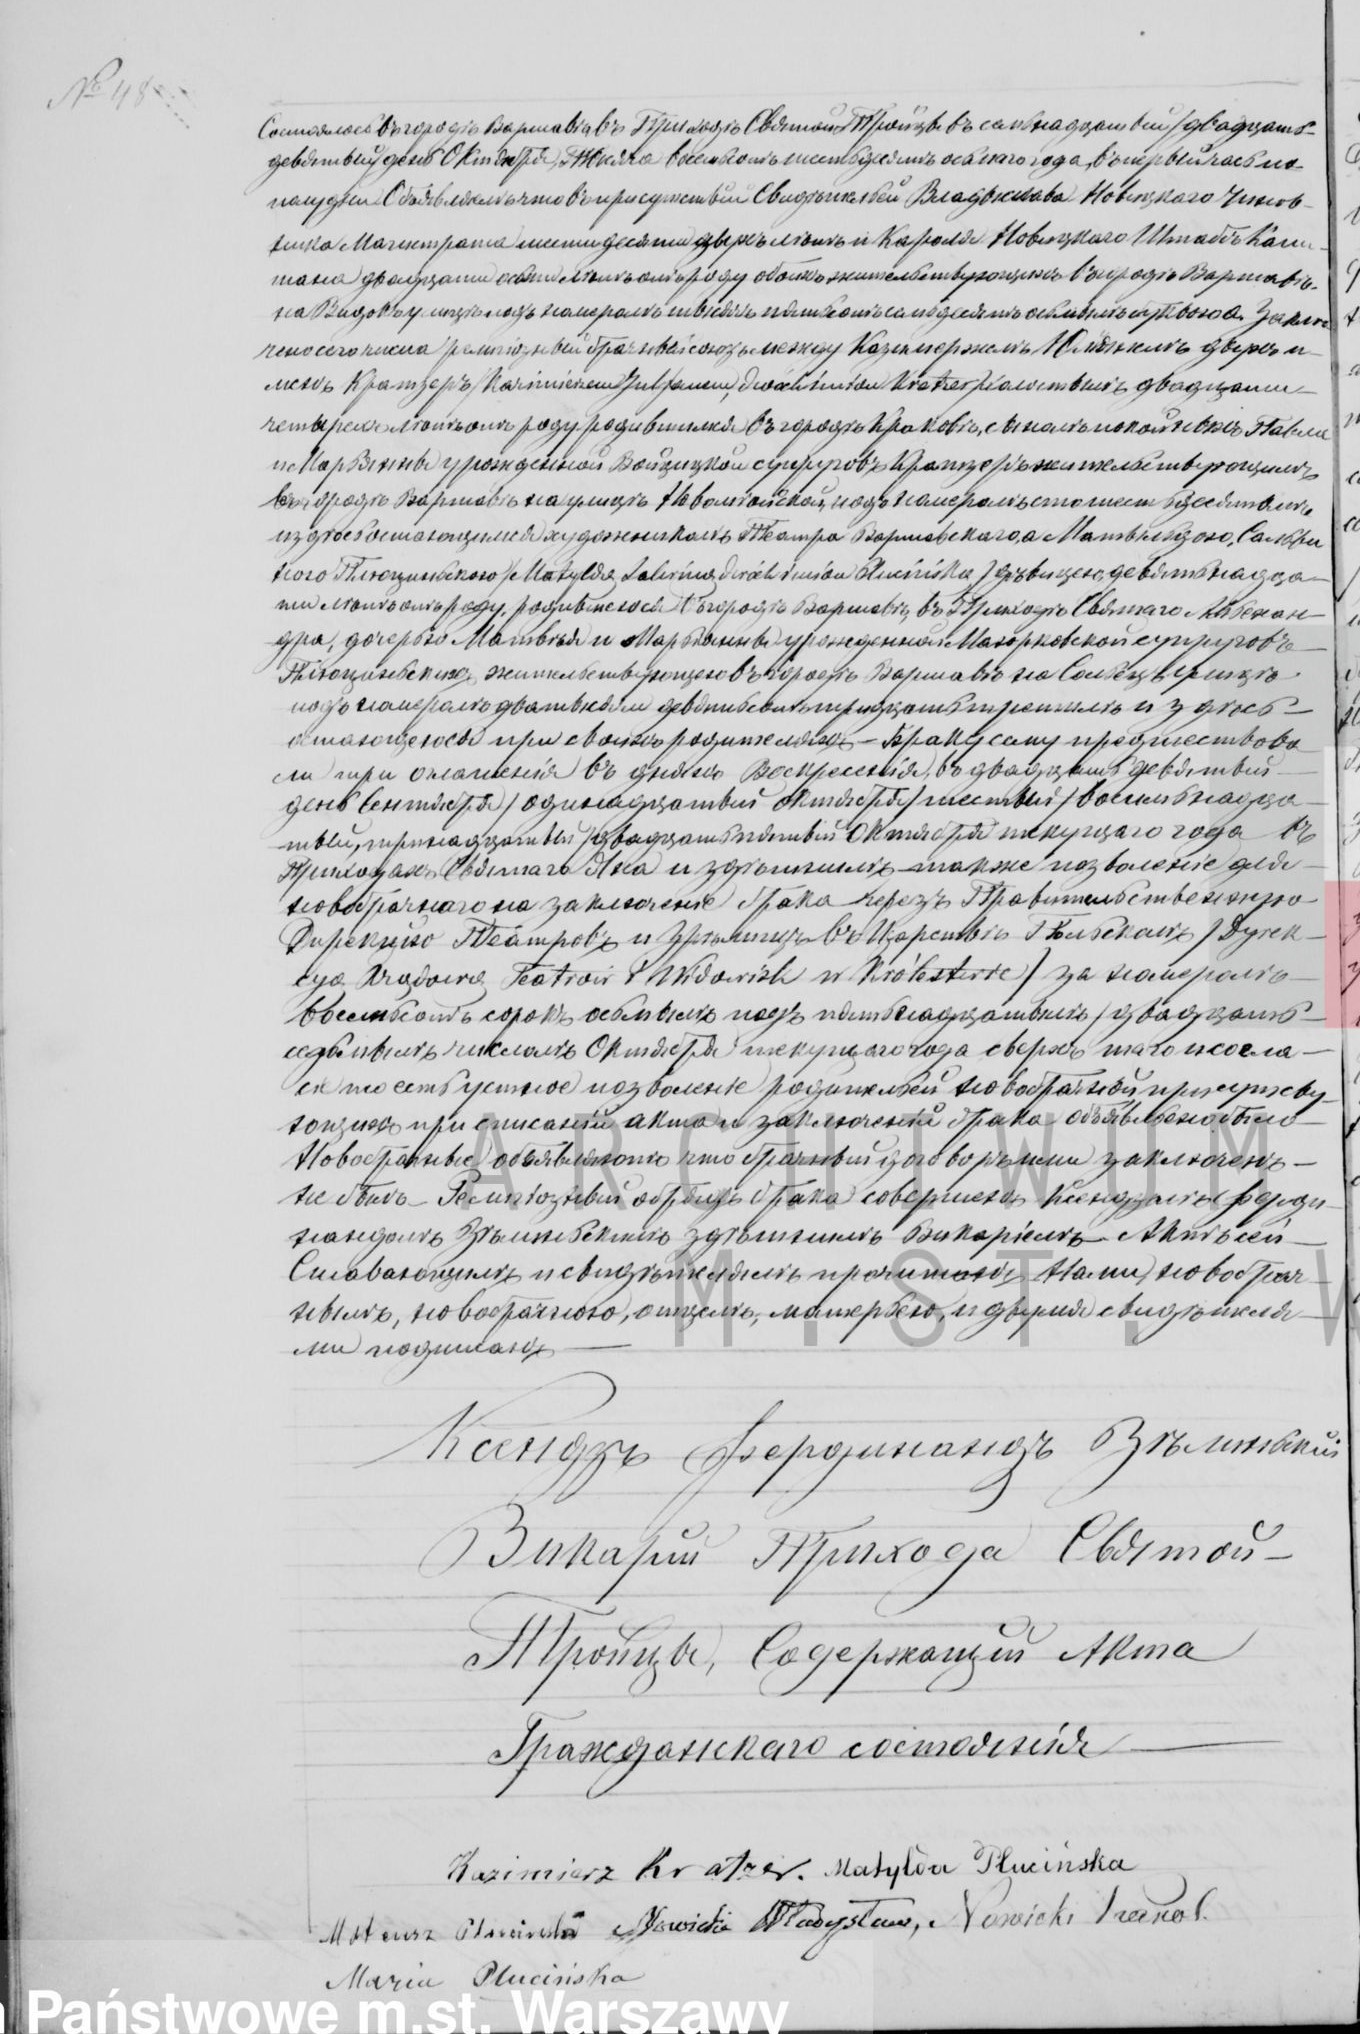 № 48
Состоялось въ городѣ Варшавѣ въ Приходѣ Святой Тройцы въ семьнадцатый /двадцать-
девятый/ день Октября, Тысяча восемьсотъ шестьдесятъ осьмого года, въ первый часъ по
полудни Объявляемъ что въ присутствіи Свидѣтелей Владыслава Новицкаго Чинов-
ника Магистрата шестидесяти двухъ лѣтъ и Кароля Новицкаго Штабъ Капи-
тана двадцати осьми лѣтъ отъ роду обоихъ жительствующихъ въ городѣ Варшавѣ
на Видокъ улицѣ подъ номеромъ тысяча пятьсотъ семьдесятъ осьмымъ буквою а. Заклю
чено сего числа религіозный брачный союзъ между Казимержемъ Юліаномъ двухъ и-
менъ Кратцеръ /Kazimierzem Julianem, dwóch imion Kratzer/ холостымъ двадцати
четырехъ лѣтъ отъ роду родившимся въ городѣ Краковѣ, сыномъ покойныхъ Павла
и Марьянны урожденной Войцицкой супруговъ Кратцеръ жительствующимъ
въ городѣ Варшавѣ на улицѣ Новолипской подъ номеромъ сто шестьдесятымъ
издѣсь состоящимся художникомъ Театра Варшавскаго, а Матыльдою, Салари
ною Плюцинською /Matyldą Saleriną dwóch imion Plucińska/ дѣвицею, девятьнадца-
ти лѣтъ отъ роду, родившеюся въ городѣ Варшавѣ, въ Приходѣ Святаго Александ-
дра, дочерью Матвѣя и Марьянны урожденной Мазорковской супруговъ
Плюциньскихъ жительствующею въ городѣ Варшавѣ на Солецъ улицѣ
подъ номеромъ дватысячи девятьсотъ тридцать третьимъ и здѣсь
стоющеюся при своихъ родителяхъ – Браку сему предшествова
ли три оглашенія въ дняхъ Воскресенія, въ двадцать девятый
день Сентября /одинадцатый Октября/ шестый /восемьнадца-
тый, тринадцатый /двадцать пятый Октября текущаго года въ
Приходахъ Святаго Яна и здѣшнимъ – также позволеніе для
новобрачнаго на заключеніе брака черезъ Правительственную
Дирекцію Театровъ и Зрѣлищъ въ Царствѣ Польскомъ /Dyrek-
cya Rządowa Teatrów i Widowisk w Królestwie/ за номеромъ
восемьсотъ сорокъ осьмымъ подъ пятьнадцатымъ /двадцать-
седьмымъ числомъ Октября текущаго года сверхъ того
есть устное позволеніе родителей новобрачной присутству-
ющихъ при списаніи акта и заключеніи брака объявлено было
Новобрачные объявляютъ что брачный договоръ ими заключенъ
не былъ – Религіозный обрядъ брака совершенъ Ксендзомъ Ферди-
нандомъ Взѣлиньскимъ здѣшнимъ Викаріемъ – Актъ сей
Сплавающимъ и свидѣтелямъ прочитанъ, Нами, новобрач-
нымъ, новобрачною, отцемъ, матерью, и двумя свидѣтеля
ми подписанъ
Ксендзъ Фердинандъ Взѣлиньскій
Викарій Прихода Святой
Тройцы, Содержащій Акта
Гражданскаго состоянія
Kazimierz Kratzer. Matylda Plucińska
Mateusz Pluciński Nowicki Władysław, Nowicki Karol.
Maria Plucińska
ARCHIWUM
M. ST. W
Państwowe m.st. Warszawy